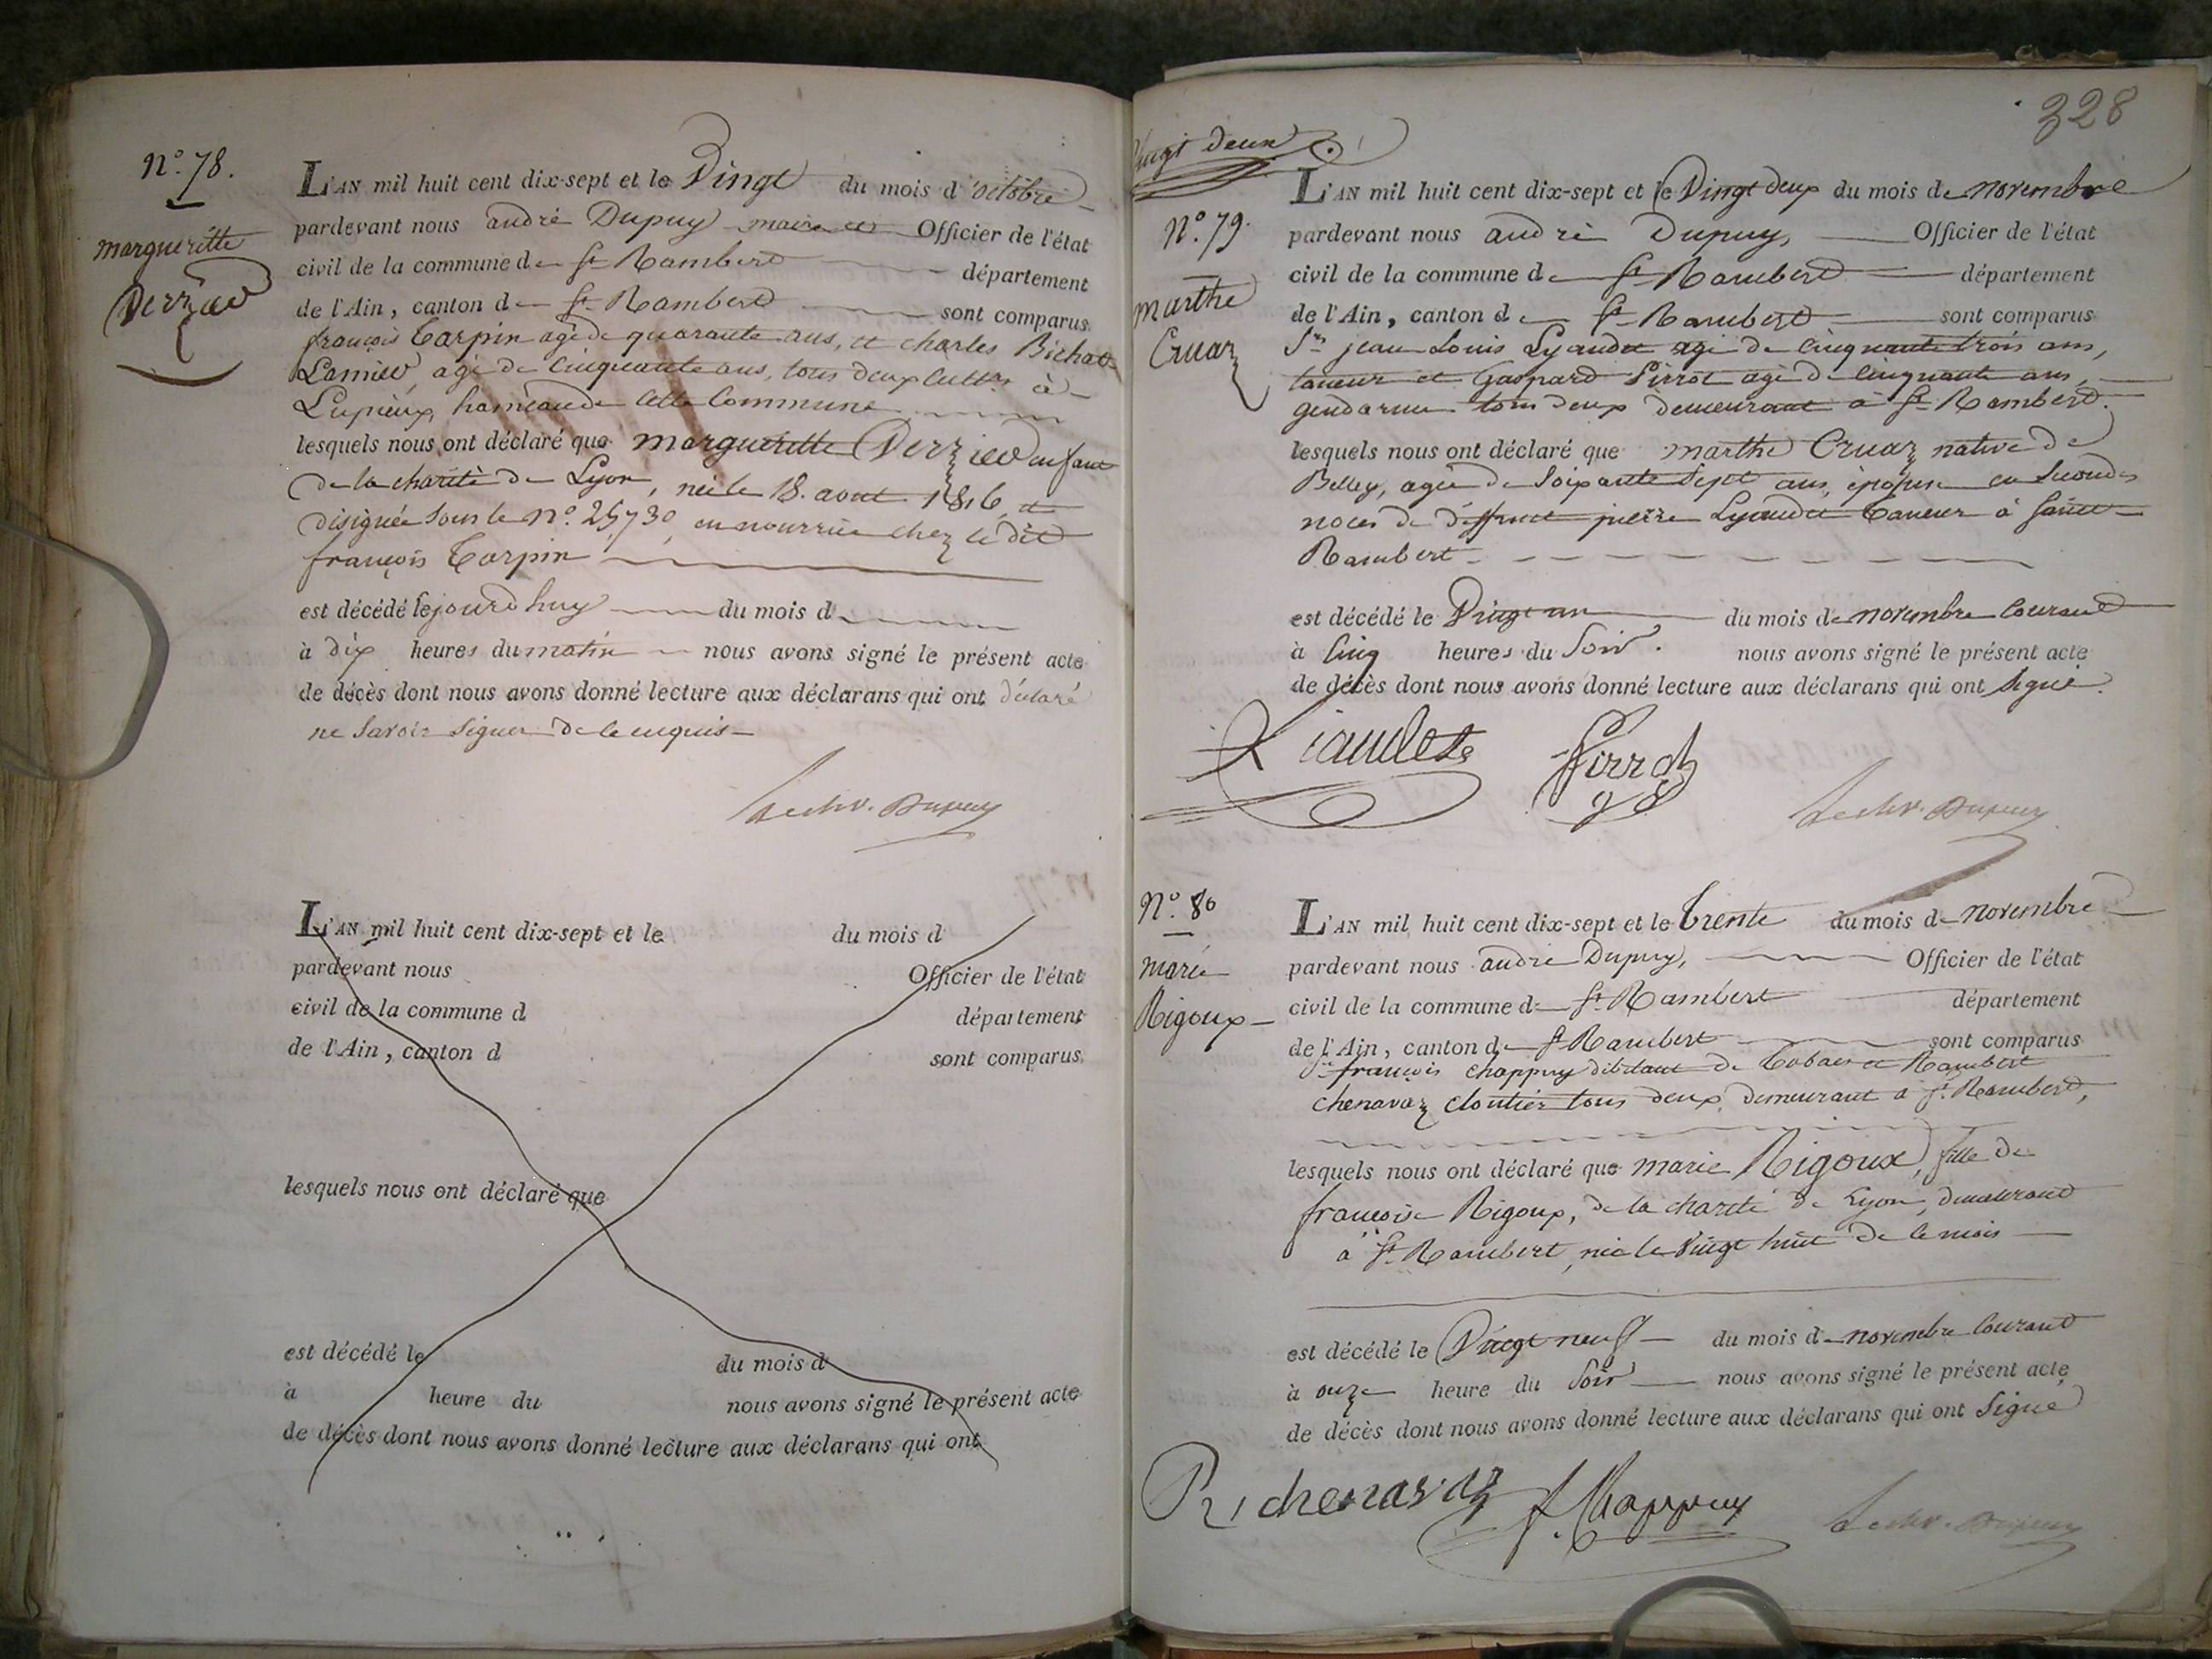 N.° 78.
margueritte
Verrieu
L'AN mil huit cent dix-sept et le Vingt du mois d'octobre
pardevant nous andré Dupuy maire et Officier de l'état
civil de la commune de St Rambert département
de l'Ain, canton de St Rambert sont comparus
françois Carpin agé de quarante ans, et charles Bichat
Lamieu, agé de Cinquante ans, tous deux cultrs à
Lupieux, hameau de cette Commune
lesquels nous ont déclaré que margueritte Verrieu enfant
de la charité de Lyon, née le 18. aout 1816, et
désignée sous le n.° 25,730, en nourrice chez le dit
françois Carpin
est décédé lejourd'huy du mois d
à dix heures du matin nous avons signé le présent acte
de décès dont nous avons donné lecture aux déclarans qui ont déclaré
ne savoir signer de ce enquis
Le chv. Dupuy
L'AN mil huit cent dix-sept et le du mois d
pardevant nous Officier de l'état
civil de la commune d département
de l'Ain, canton d sont comparus
lesquels nous ont déclaré que
est décédé le du mois d
à heure du nous avons signé le présent acte
de décès dont nous avons donné lecture aux déclarans qui ont
328
Vingt deux
N.° 79.
marthe
Cruaz
L'AN mil huit cent dix-sept et le Vingt deux du mois de novembre
pardevant nous andré Dupuy, Officier de l'état
civil de la commune de St Rambert département
de l'Ain, canton de St Rambert sont comparus
Srs jean Louis Lyaudet agé de Cinquante trois ans,
taneur et Gaspard Pirrot agé de Cinquante ans,
gendarme tous deux demeurant à St Rambert.
lesquels nous ont déclaré que marthe Cruaz native de
Belley, agée de soixante sept ans, épouse en secondes
noces de deffunt pierre Lyaudet taneur à saint
Rambert
est décédé le Vingt un du mois de novembre courant
à cinq heures du soir. nous avons signé le présent acte
de décès dont nous avons donné lecture aux déclarans qui ont signé.
Liaudet Pirrot
Le chv. Dupuy
N.° 80
marie
Rigoux
L'AN mil huit cent dix-sept et le trente du mois de novembre
pardevant nous andré Dupuy, Officier de l'état
civil de la commune de St Rambert département
de l'Ain, canton de St Rambert sont comparus
françois chappuy débitant de tabac et Rambert
chenavaz cloutier tous deux demeurant à St Rambert,
lesquels nous ont déclaré que marie Rigoux, fille de
françoise Rigoux, de la charité de Lyon, demeurant
à St Rambert, née le vingt huit de ce mois
est décédé le Vingt neuf du mois de novembre courant
à onze heure du soir nous avons signé le présent acte
de décès dont nous avons donné lecture aux déclarans qui ont signé
R, chenavaz f. Chappuy Le chv. Dupuy